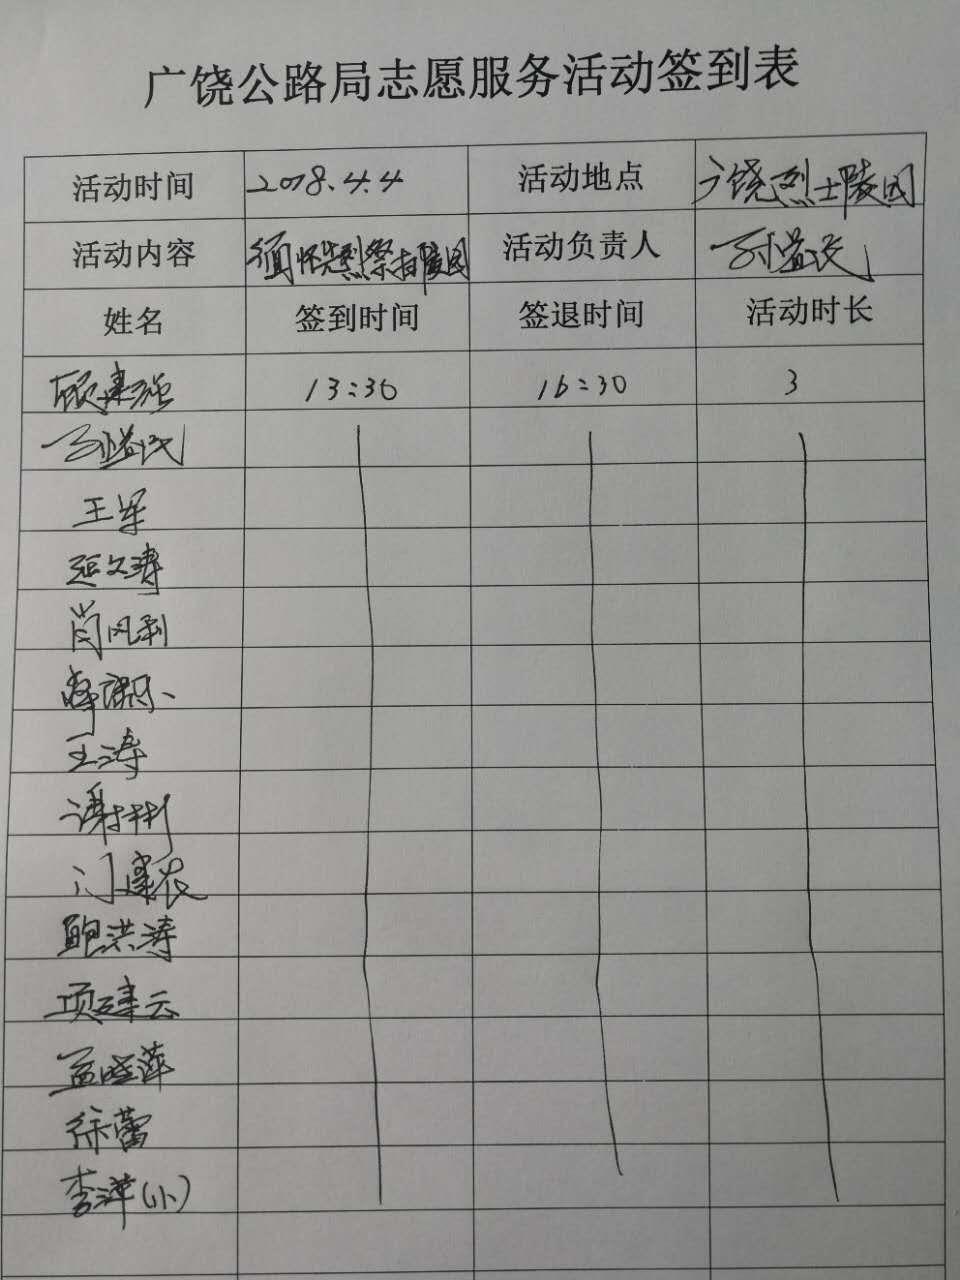 广饶公路局志愿服务活动签到表
活动时间 2018.4.4 活动地点 广饶烈士陵园
活动内容 缅怀先烈祭扫陵园 活动负责人 孙益民
姓名 签到时间 签退时间 活动时长
顾建强 13:30 16:30 3
孙益民
王军
延文涛
肖风利
王涛
谢彬
门建农
鲍洪涛
项建云
孟晓萍
徐蕾
李萍(小)